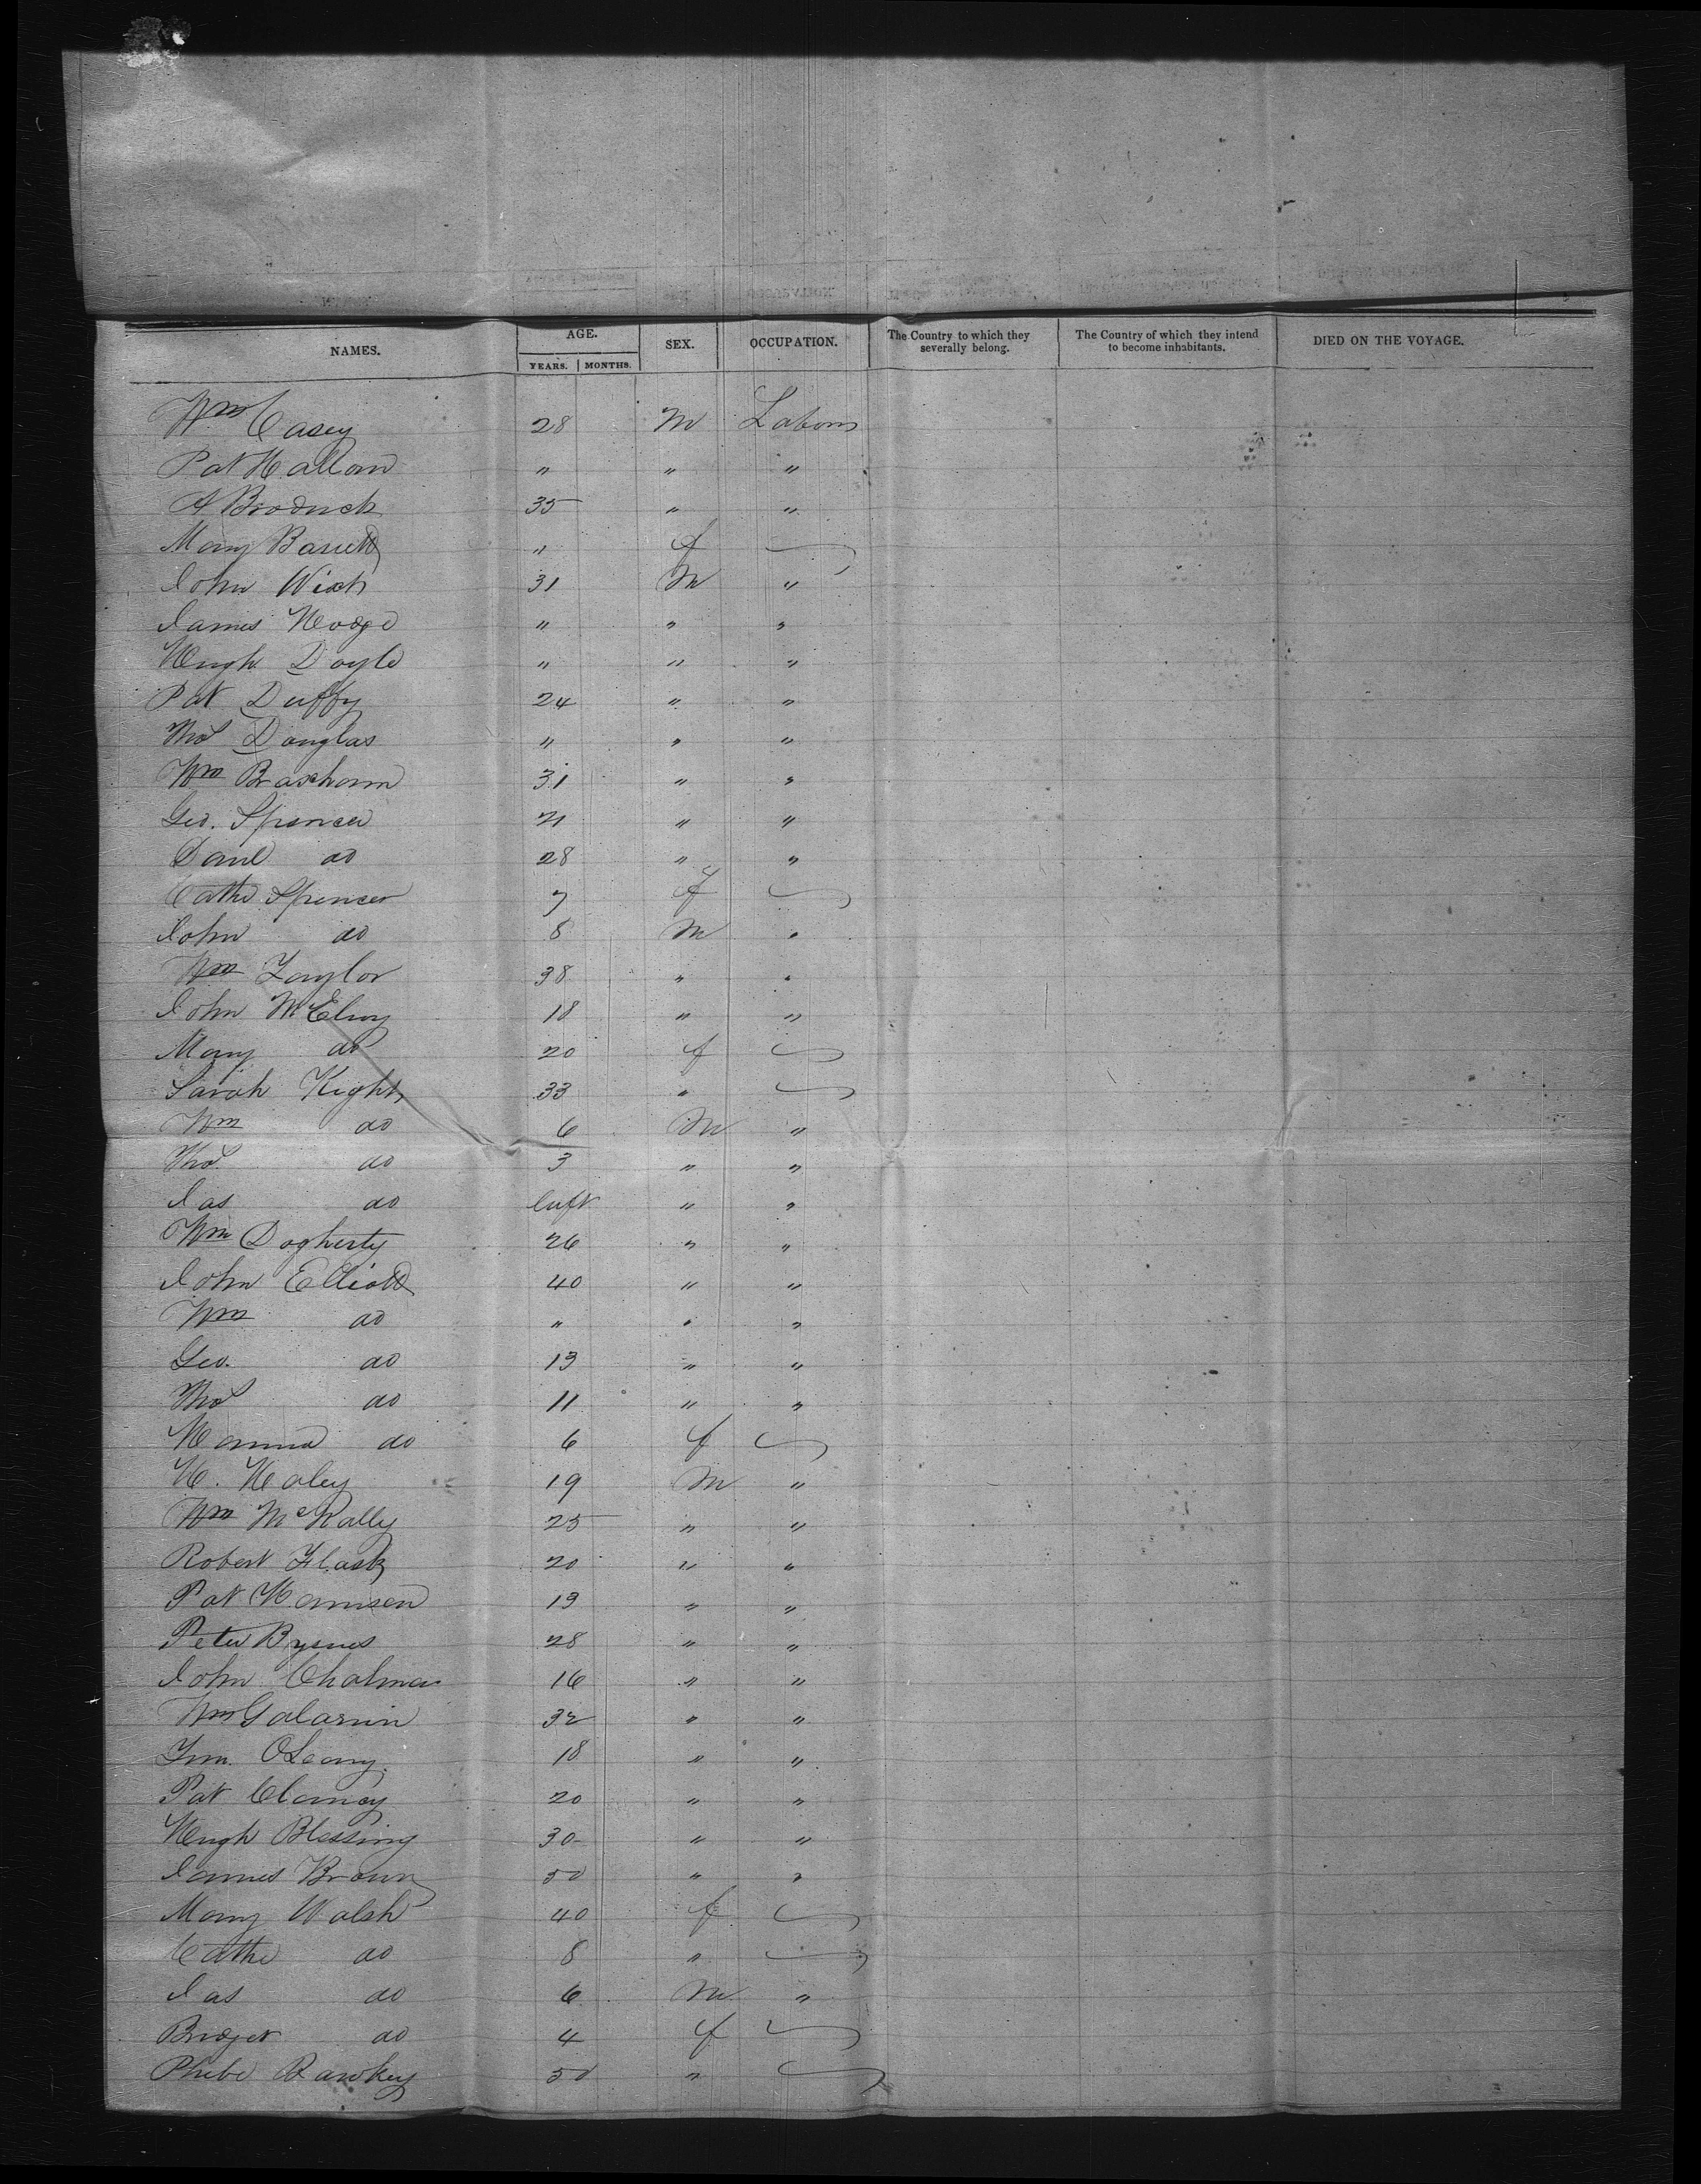 NAMES. AGE. SEX. OCCUPATION. The Country to which they severally belong. The Country of which they intend to become inhabitants. DIED ON THE VOYAGE.
YEARS. MONTHS.
Wm Casey 28 M Labour
Pat Hallorn " " "
A Brodrick 35 " "
Mary Barrett " f
John Wich 31 M "
James Hodge " " "
Hugh Doyle " " "
Pat Duffy 24 " "
Thos Douglas " " "
Wm Braxhorm 31 " "
Geo. Spencer 21 " "
Danl do 28 " "
Cathe Spencer 7 f
John do 8 M "
Wm Taylor 38 " "
John McElroy 18 " "
Mary do 20 f
Sarah Kight 33 "
Wm do 6 M "
Thos do 3 " "
Jas do Inft " "
Wm Dogherty 26 " "
John Elliott 40 " "
Wm do " " "
Geo. do 13 " "
Thos do 11 " "
Hanna do 6 f
H. Haley 19 M "
Wm McNally 25 " "
Robert Flask 20 " "
Pat Hannisen 19 " "
Peter Byrnes 28 " "
John Chalmer 16 " "
Wm Galarnin 32 " "
Tim. OLeary 18 " "
Pat Clancy 20 " "
Hugh Blessing 30 " "
James Brown 50 " "
Mary Walsh 40 f
Cathe do 8 "
Jas do 6 M "
Bridget do 4 f
Phebe Rawkey 50 "